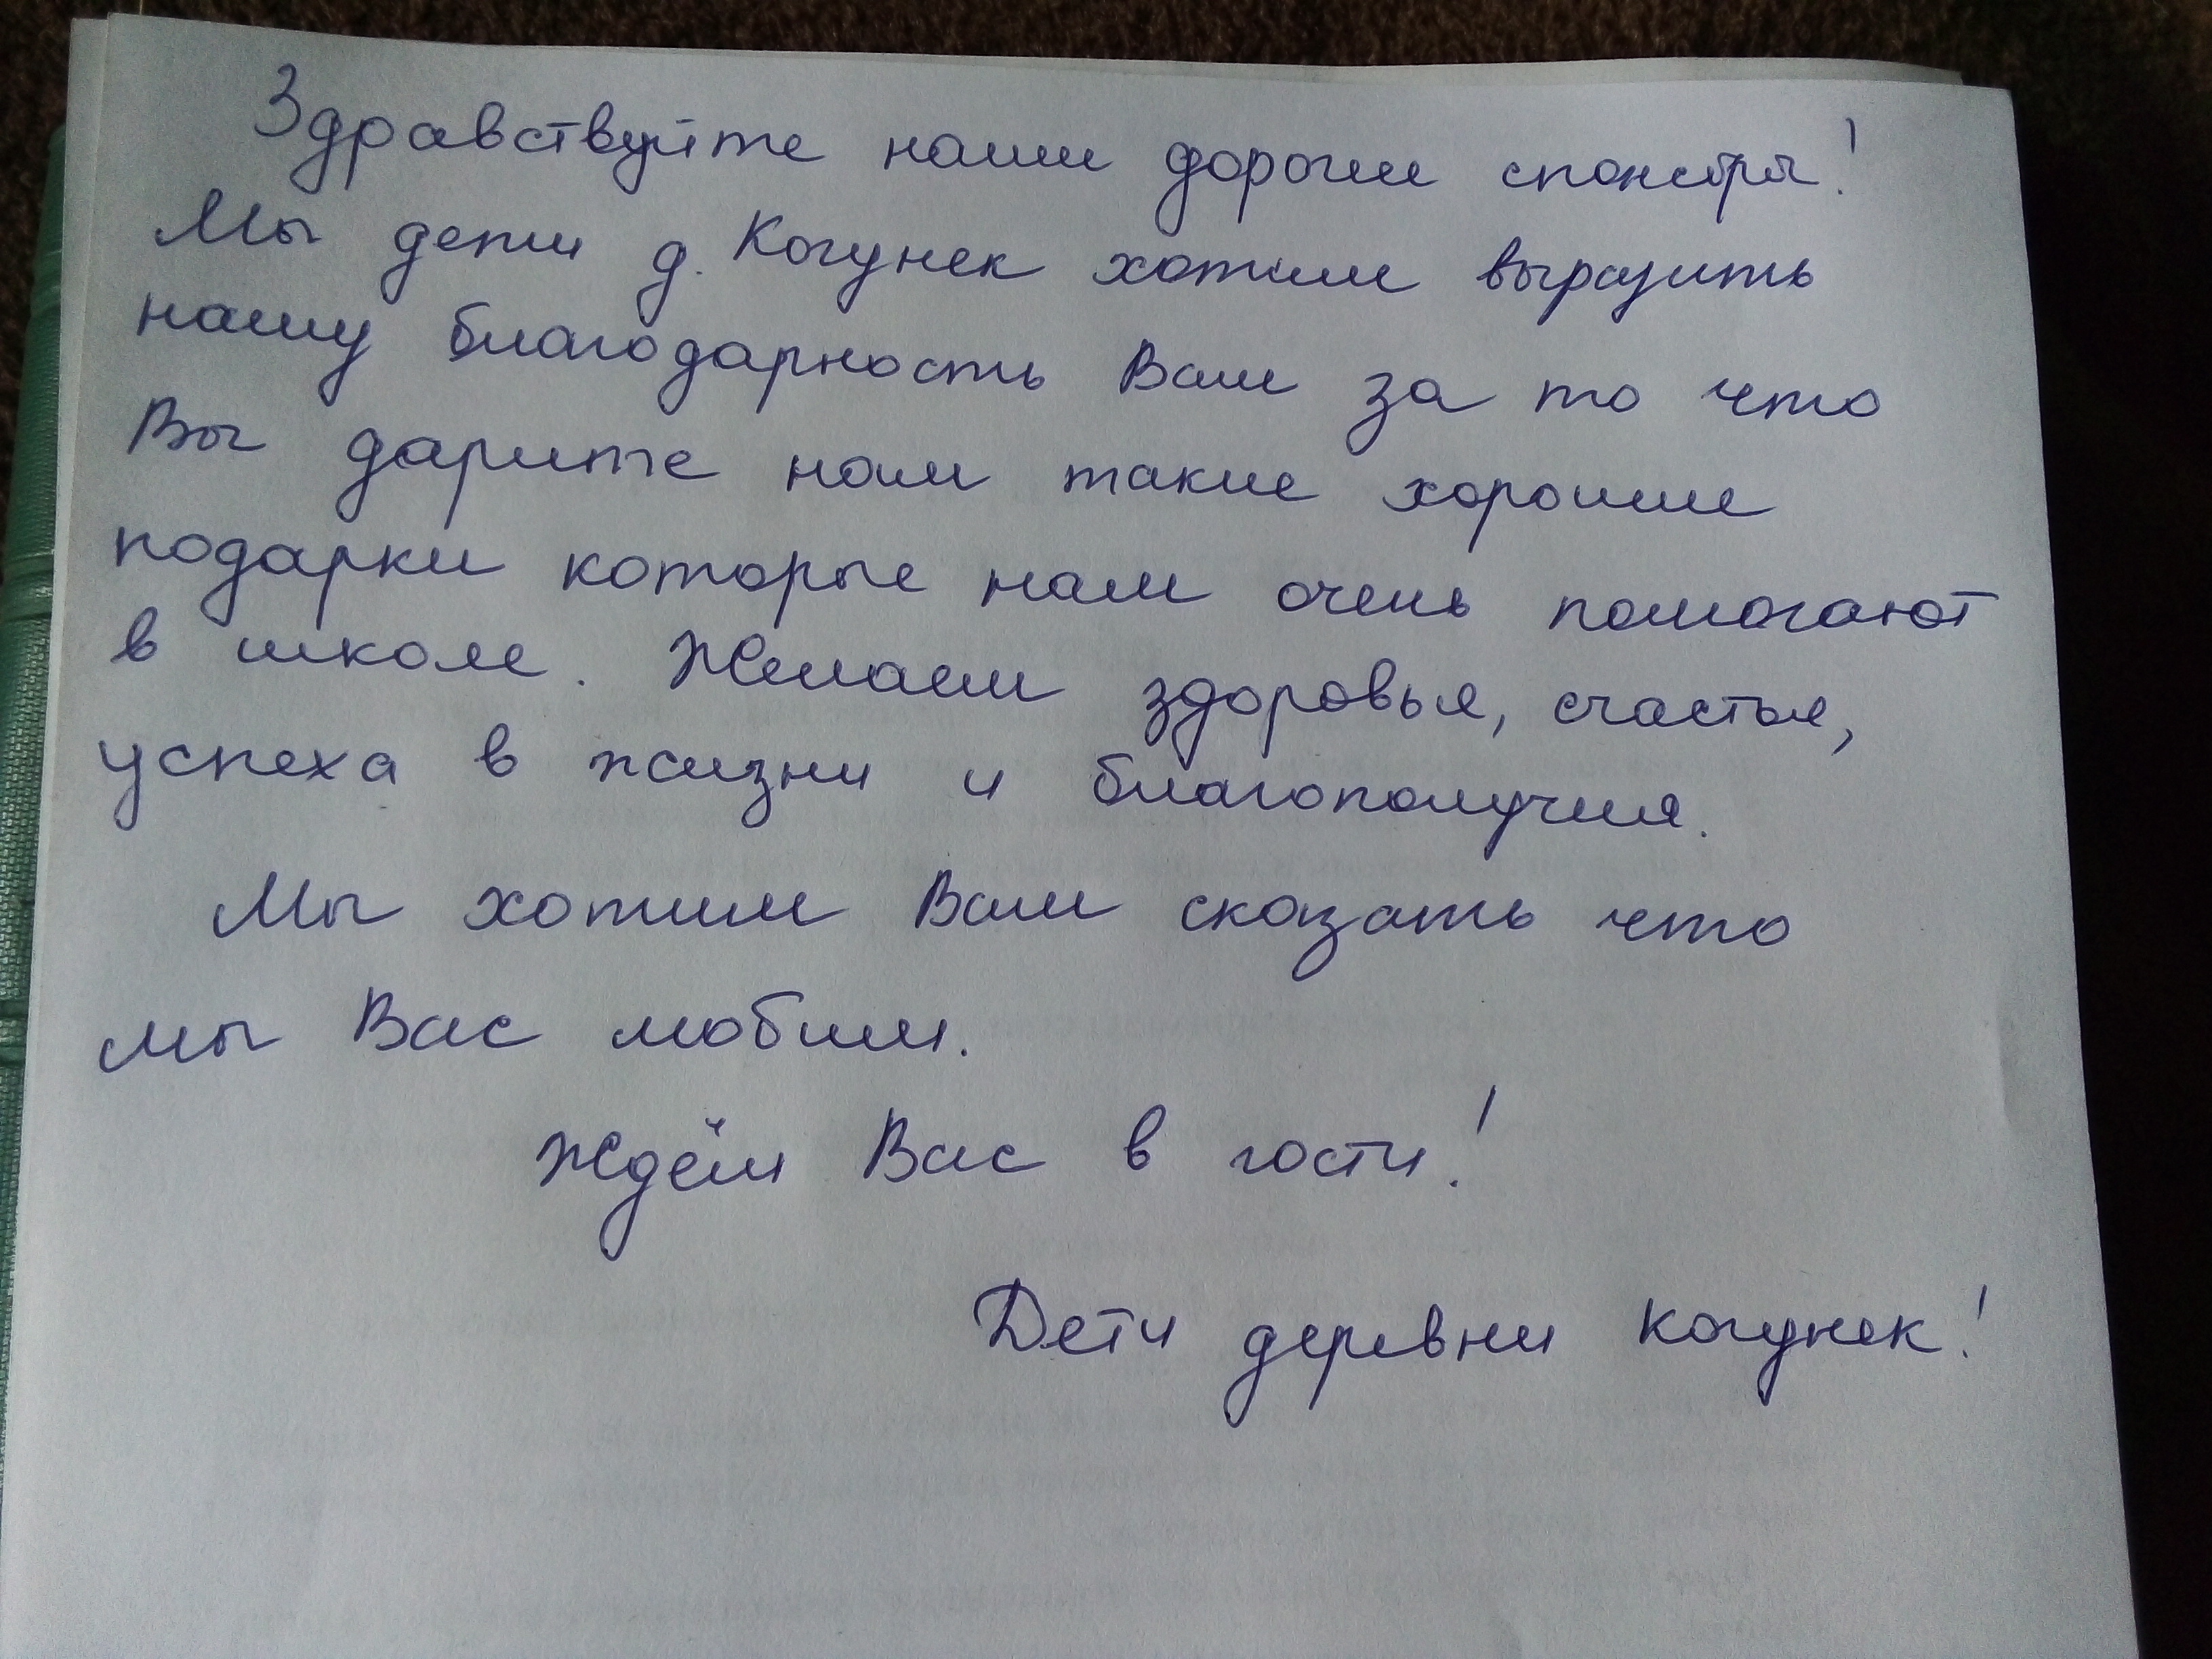 Здравствуйте наши дорогие спонсоры!
Мы дети д. Когунек хотим выразить
нашу благодарность Вам за то что
Вы дарите нам такие хорошие
подарки которые нам очень помогают
в школе. Желаем здоровья, счастья,
успеха в жизни и благополучия.
Мы хотим Вам сказать что
мы Вас любим.
Ждём Вас в гости!
Дети деревни Когунек!